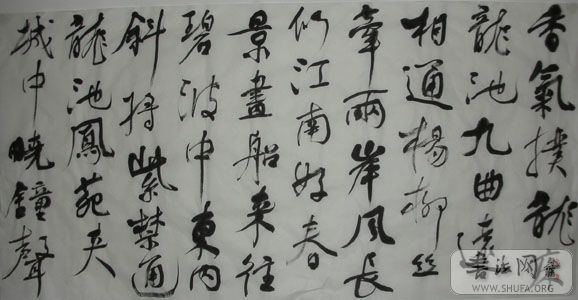 香氣撲龍
龍池九曲遠
相通楊柳絲
牽兩岸風長
似江南好春
景畫船來往
碧波中東內
斜將紫禁通
龍池鳳苑夾
城中曉鐘聲
書法网
WWW.SHUFA.ORG